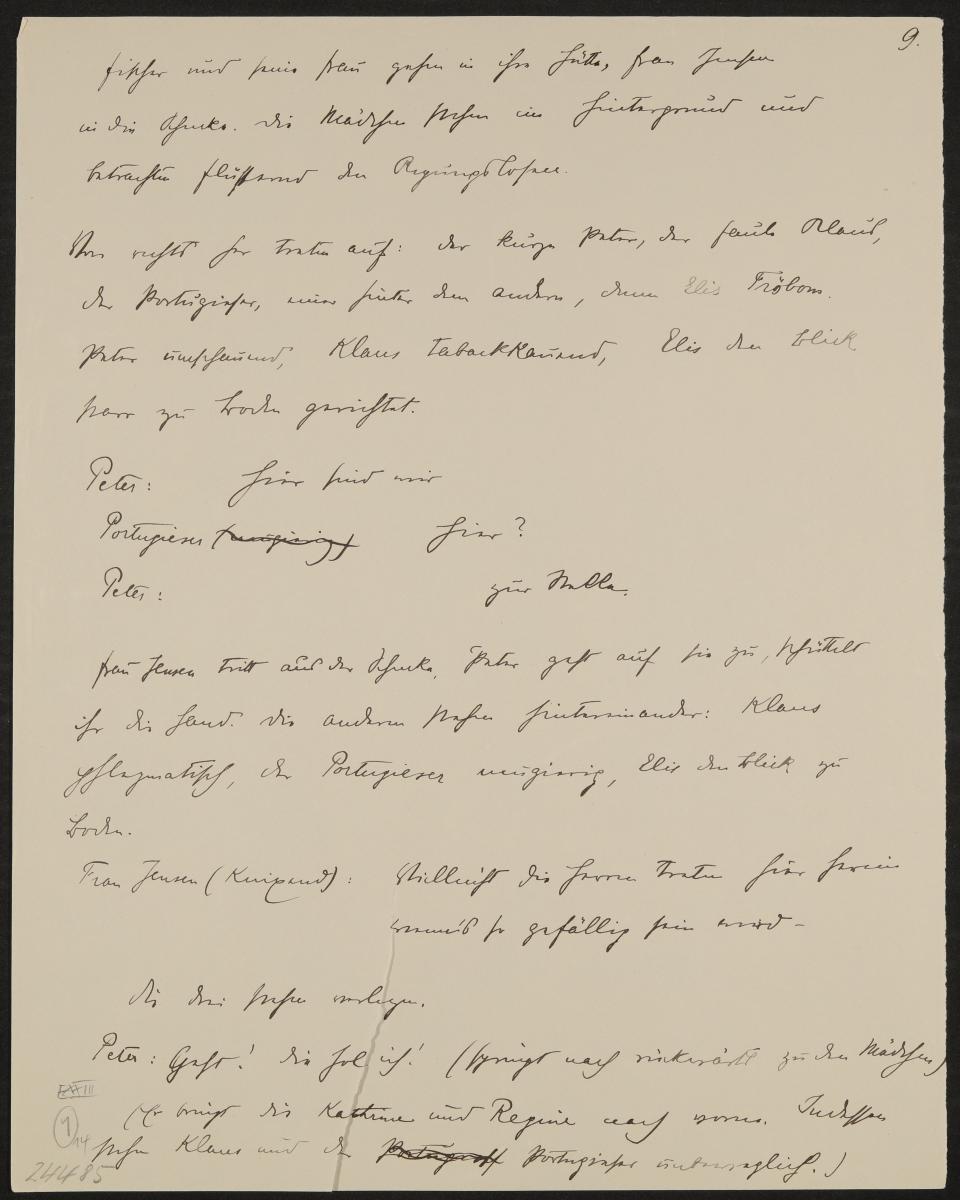 9.
Fischer und seine Frau gehen in ihre Hütte, Frau Jensen
in die Schenke. Die Mädchen stehen im Hintergrund und
betrachten flüsternd den Regungslosen.
Von rechts her treten auf: der kurze Peter, der faule Klaus,
der Portugieser, einer hinter dem andern, dann Elis Fröbom.
Peter umschauend, Klaus tabackkauend, Elis den Blick
starr zu Boden gerichtet.
Peter: Hier sind wir
Portugieser (neugierig) Hier?
Peter: zur Stelle.
Frau Jensen tritt aus der Schenke, Peter geht auf sie zu, schüttelt
ihr die Hand. Die anderen stehen hintereinander: Klaus
phlegmatisch, der Portugieser neugierig, Elis den Blick zu
Boden.
Frau Jensen (knixend): Vielleicht die Herren treten hier herein
wenn's so gefällig sein wird –
die drei stehen verlegen.
Peter: Geht! die hol ich! (springt nach rückwärts zu den Mädchen)
(Er bringt die Kathrine und Regine nach vorne. Indessen
stehn Klaus und der Portugieser unbeweglich.)
XXIII
9
14
24485